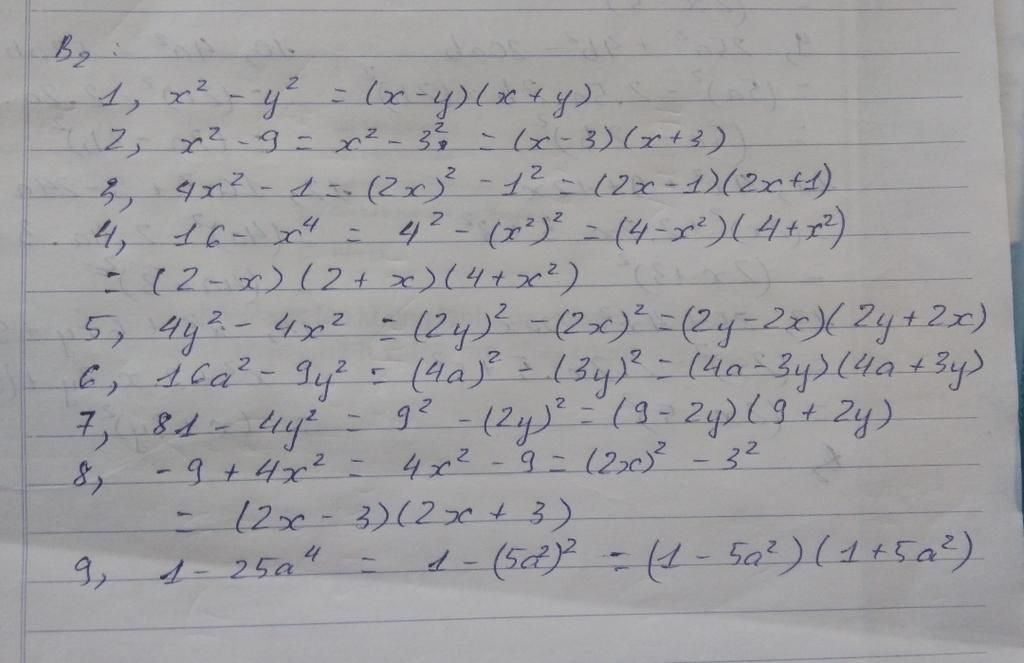 B₂ :
1, x² - y² = (x-y)(x+y)
2, x² - 9 = x² - 3² = (x-3)(x+3)
3, 4x² - 1 = (2x)² - 1² = (2x-1)(2x+1)
4, 16 - x⁴ = 4² - (x²)² = (4-x²)(4+x²)
= (2-x)(2+x)(4+x²)
5, 4y² - 4x² = (2y)² - (2x)² = (2y-2x)(2y+2x)
6, 16a² - 9y² = (4a)² - (3y)² = (4a-3y)(4a+3y)
7, 81 - 4y² = 9² - (2y)² = (9-2y)(9+2y)
8, -9 + 4x² = 4x² - 9 = (2x)² - 3²
= (2x-3)(2x+3)
9, 1 - 25a⁴ = 1 - (5a²)² = (1-5a²)(1+5a²)